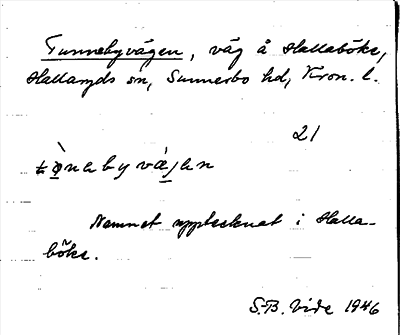 Tunnebyvägen, väg å Hallaböke,
Hallaryds sn, Sunnerbo hd, Kron. l.
21
tø̀nabyvä́jan
Namnet upptecknat i Halla-
böke.
S.-B. Vide 1946